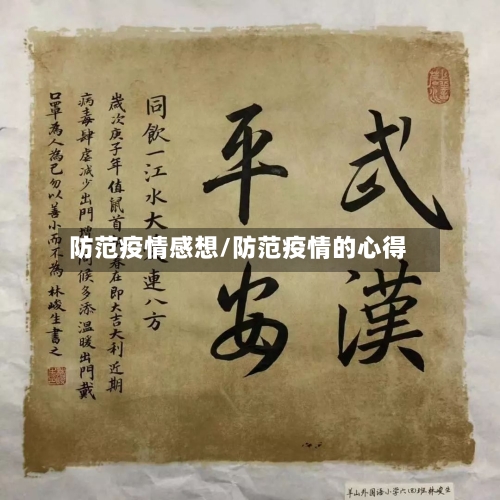 武漢
平安
同飲一江水大連八方
歲次庚子年值鼠首春在即大吉大利近期
病毒肆虐減少出門候多添温暖出門戴
口罩為人為己勿以善小而不為 林峻生書之
防范疫情感想/防范疫情的心得
羊山外国语小学六(四)班 林峻生